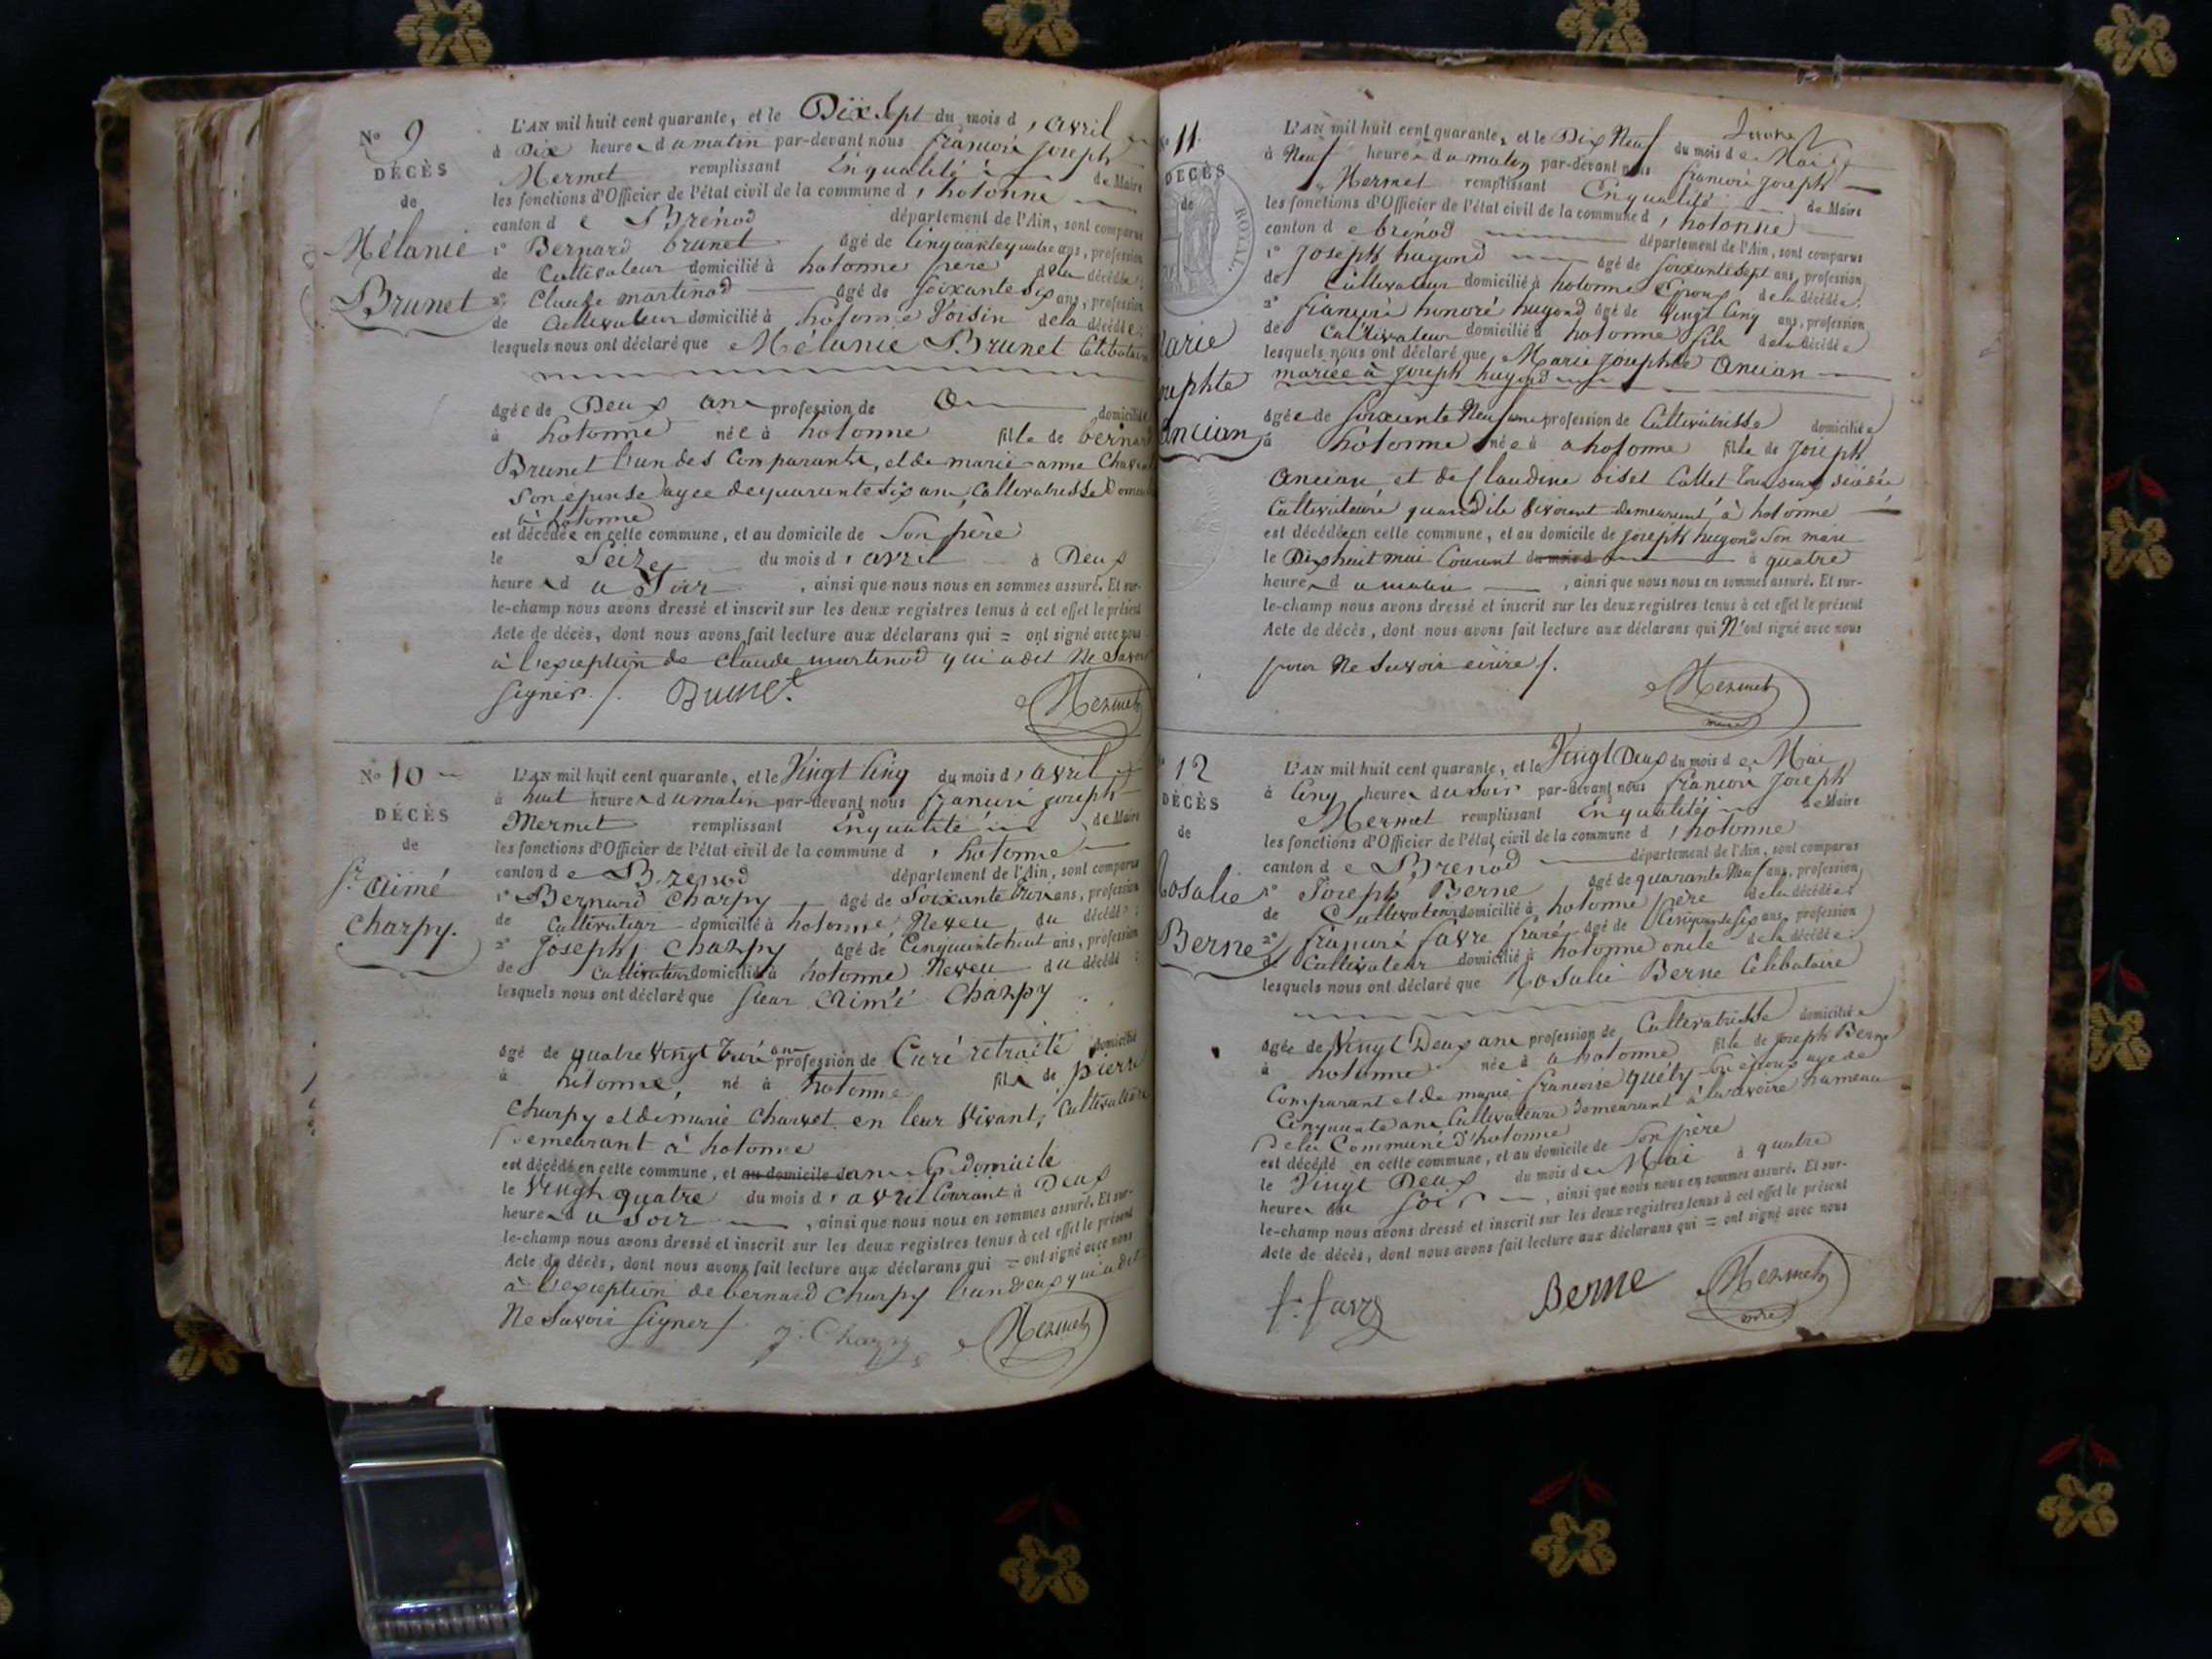 No 9
DÉCÈS
de
Mélanie
Brunet
L'AN mil huit cent quarante, et le Dix Sept du mois d'avril
à Dix heures du matin par-devant nous françois joseph
Mermet remplissant En qualité de Maire
les fonctions d'Officier de l'état civil de la commune d'hotonne
canton de Brénod département de l'Ain, sont comparus
1° Bernard brunet agé de Cinquante quatre ans, profession
de Cultivateur domicilié à hotonne père de la décédée;
2° Claude martinod agé de Soixante Six ans, profession
de Cultivateur domicilié à hotonne Voisin de la décédée;
lesquels nous ont déclaré que Mélanie Brunet Célibataire
agée de Deux ans profession de domiciliée
à hotonne née à hotonne fille de bernard
Brunet l'un des Comparants, et de marie anne Charvet
Son épouse agée de quarante Six ans, Cultivatrisse
à hotonne
est décédée en cette commune, et au domicile de Son père
le Seize du mois d'avril à Deux
heures du Soir, ainsi que nous nous en sommes assuré. Et sur-
le-champ nous avons dressé et inscrit sur les deux registres tenus à cet effet le présent
Acte de décès, dont nous avons fait lecture aux déclarans qui = ont signé avec nous
à l'exception de Claude martinod qui a dit Ne Savoir
Signer /. Brunet Mermet
No 10
DÉCÈS
de
Sr Aimé
Charpy.
L'AN mil huit cent quarante, et le Vingt Cinq du mois d'avril
à huit heures du matin par-devant nous françois joseph
Mermet remplissant En qualité de Maire
les fonctions d'Officier de l'état civil de la commune d'hotonne
canton de Brenod département de l'Ain, sont comparus
1° Bernard Charpy agé de Soixante trois ans, profession
de Cultivateur domicilié à hotonne Neveu du décédé;
2° Joseph Charpy agé de Cinquante huit ans, profession
de Cultivateur domicilié à hotonne Neveu du décédé;
lesquels nous ont déclaré que Sieur Aimé Charpy
agé de quatre Vingt trois ans profession de Curé retraité domicilié
à hotonne, né à hotonne fils de pierre
Charpy et de marie Charvet en leur Vivant, Cultivateurs
Demeurant à hotonne
est décédé en cette commune, et au domicile dans Son domicile
le Vingt quatre du mois d'avril Courant à Deux
heures du Soir, ainsi que nous nous en sommes assuré. Et sur-
le-champ nous avons dressé et inscrit sur les deux registres tenus à cet effet le présent
Acte de décès, dont nous avons fait lecture aux déclarans qui = ont signé avec nous
à l'exception de bernard Charpy l'un Deux qui a dit
Ne Savoir Signer /. J. Charpy Mermet
No 11
DÉCÈS
de
ROYAL.
Marie
Josephte
Ancian
L'AN mil huit cent quarante, et le Dix Neuf du mois de Mai
à Neuf heures du matin par-devant nous françois joseph
Mermet remplissant En qualité de Maire
les fonctions d'Officier de l'état civil de la commune d'hotonne
canton de brénod département de l'Ain, sont comparus
1° Joseph hugond agé de Soixante Sept ans, profession
de Cultivateur domicilié à hotonne Epoux de la décédée;
2° françois honoré hugond agé de Vingt Cinq ans, profession
de Cultivateur domicilié à hotonne fils de la décédée
lesquels nous ont déclaré que Marie Josephte Ancian
mariée à Joseph hugond
agée de Soixante Neuf ans profession de Cultivatrisse domiciliée
à hotonne née à a hotonne fille de Joseph
Ancian et de Claudine oiset Callet tous deux décédés
Cultivateurs quand ils Vivoient demeurant à hotonne
est décédée en cette commune, et au domicile de joseph hugond Son mari
le Dix huit mai Courant du mois d à quatre
heures du matin, ainsi que nous nous en sommes assuré. Et sur-
le-champ nous avons dressé et inscrit sur les deux registres tenus à cet effet le présent
Acte de décès, dont nous avons fait lecture aux déclarans qui N'ont signé avec nous
pour Ne Savoir écrire /.
Mermet
maire
12
DÉCÈS
de
Rosalie
Berne
L'AN mil huit cent quarante, et le Vingt Deux du mois de Mai
à Cinq heures du Soir par-devant nous françois Joseph
Mermet remplissant En qualité de Maire
les fonctions d'Officier de l'état civil de la commune d'hotonne
canton de Brenod département de l'Ain, sont comparus
1° Joseph Berne agé de quarante Neuf ans, profession
de Cultivateur domicilié à hotonne père de la décédée;
2° françois favre agé de Cinquante Six ans, profession
de Cultivateur domicilié à hotonne oncle de la décédée;
lesquels nous ont déclaré que Rosalie Berne Célibataire
agée de Vingt Deux ans profession de Cultivatrisse domiciliée
à hotonne née à a hotonne fille de joseph Berne
Comparant et de marie francoise Son épouse agé de
Cinquante ans Cultivateurs demeurant à hameau
De la Commune d'hotonne
est décédé en cette commune, et au domicile de Son père
le Vingt Deux du mois de Mai à quatre
heures du Soir, ainsi que nous nous en sommes assuré. Et sur-
le-champ nous avons dressé et inscrit sur les deux registres tenus à cet effet le présent
Acte de décès, dont nous avons fait lecture aux déclarans qui = ont signé avec nous
f. favre Berne Mermet